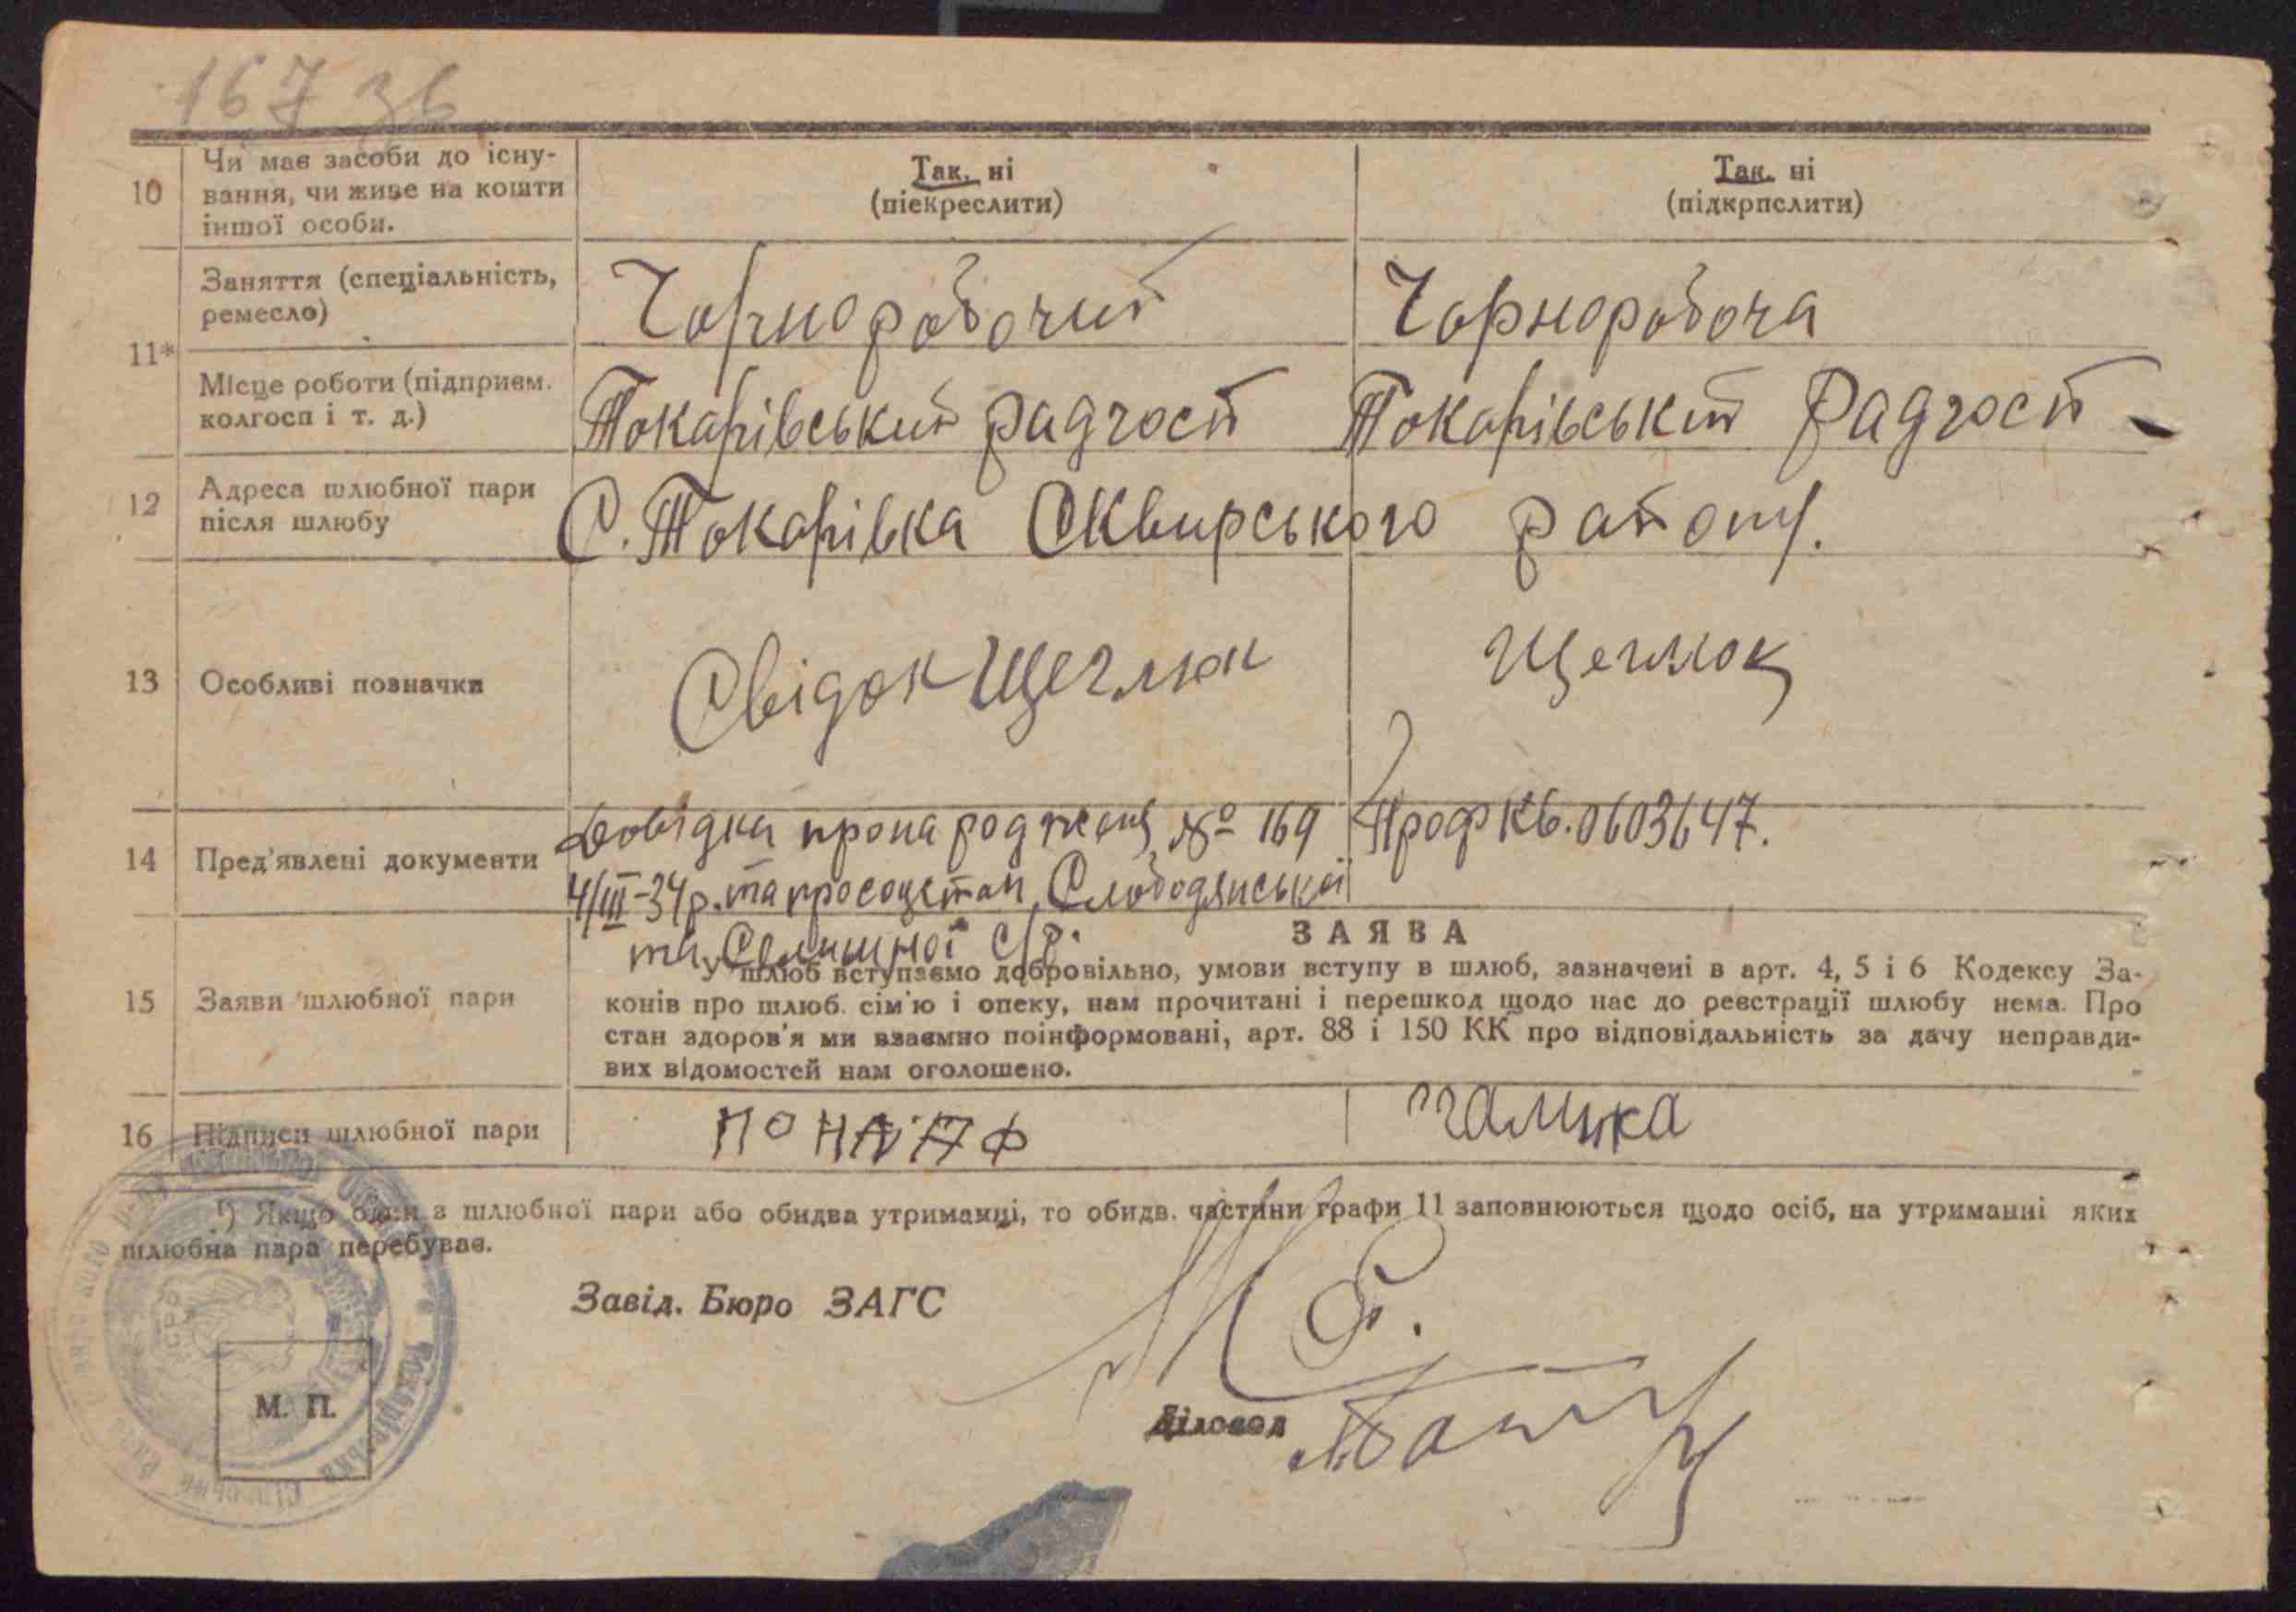 167 зв
10 Чи має засоби до існу-
вання, чи живе на кошти
іншої особи.
Так, ні
(піекреслити)
Так, ні
(підкрпслити)
11*
Заняття (спеціальність,
ремесло)
Чорноробочий
Чорноробоча
Місце роботи (підприєм.
колгосп і т. д.)
Токарівський радгосп
Токарівський Радгосп
12 Адреса шлюбної пари
після шлюбу
С. Токарівка Сквирського району.
13 Особливі позначки
Свідок Щеглюк
Щеглюк
14 Пред'явлені документи
Довідка про народження № 169
4/III-34р. та про соцстан Слободянської
та Селишної с/р.
Проф кв. 0603647.
15 Заяви шлюбної пари
ЗАЯВА
У шлюб вступаємо добровільно, умови вступу в шлюб, зазначені в арт. 4, 5 і 6 Кодексу За-
конів про шлюб. сім'ю і опеку, нам прочитані і перешкод щодо нас до реєстрації шлюбу нема. Про
стан здоров'я ми взаємно поінформовані, арт. 88 і 150 КК про відповідальність за дачу неправди-
вих відомостей нам оголошено.
16 Підписи шлюбної пари
Галицка
*) Якщо один з шлюбної пари або обидва утриманці, то обидв. частини графи 11 заповнюються щодо осіб, на утриманні яких
шлюбна пара перебуває.
Завід. Бюро ЗАГС
Діловод
М. П.